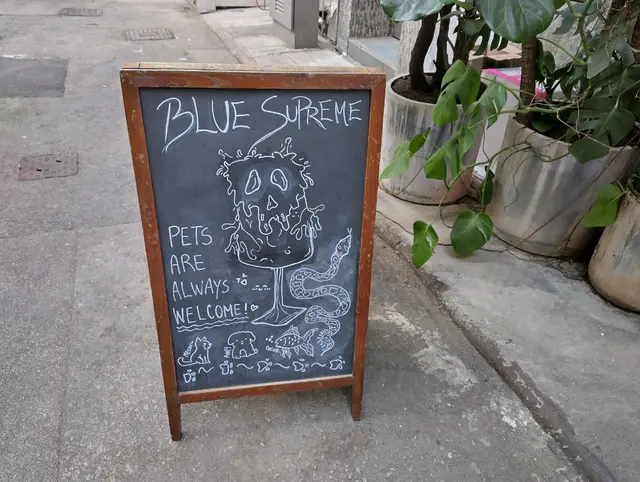 BLUE SUPREME
PETS
ARE
ALWAYS
WELCOME!